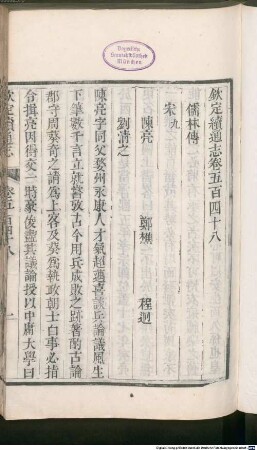 欽定續通志卷五百四十八
儒林傳
宋九
陳亮 鄭樵 程迥
劉清之
陳亮字同父婺州永康人才氣超邁喜談兵論議風生
下筆數千言立就嘗攷古今用兵成敗之跡著酌古論
郡守周葵奇之請爲上客及葵爲執政朝士白事必指
令揖亮因得交一時豪俊盡其議論授以中庸大學曰
欽定續通志 卷五百四十八 一
Bayerische
Staatsbibliothek
München